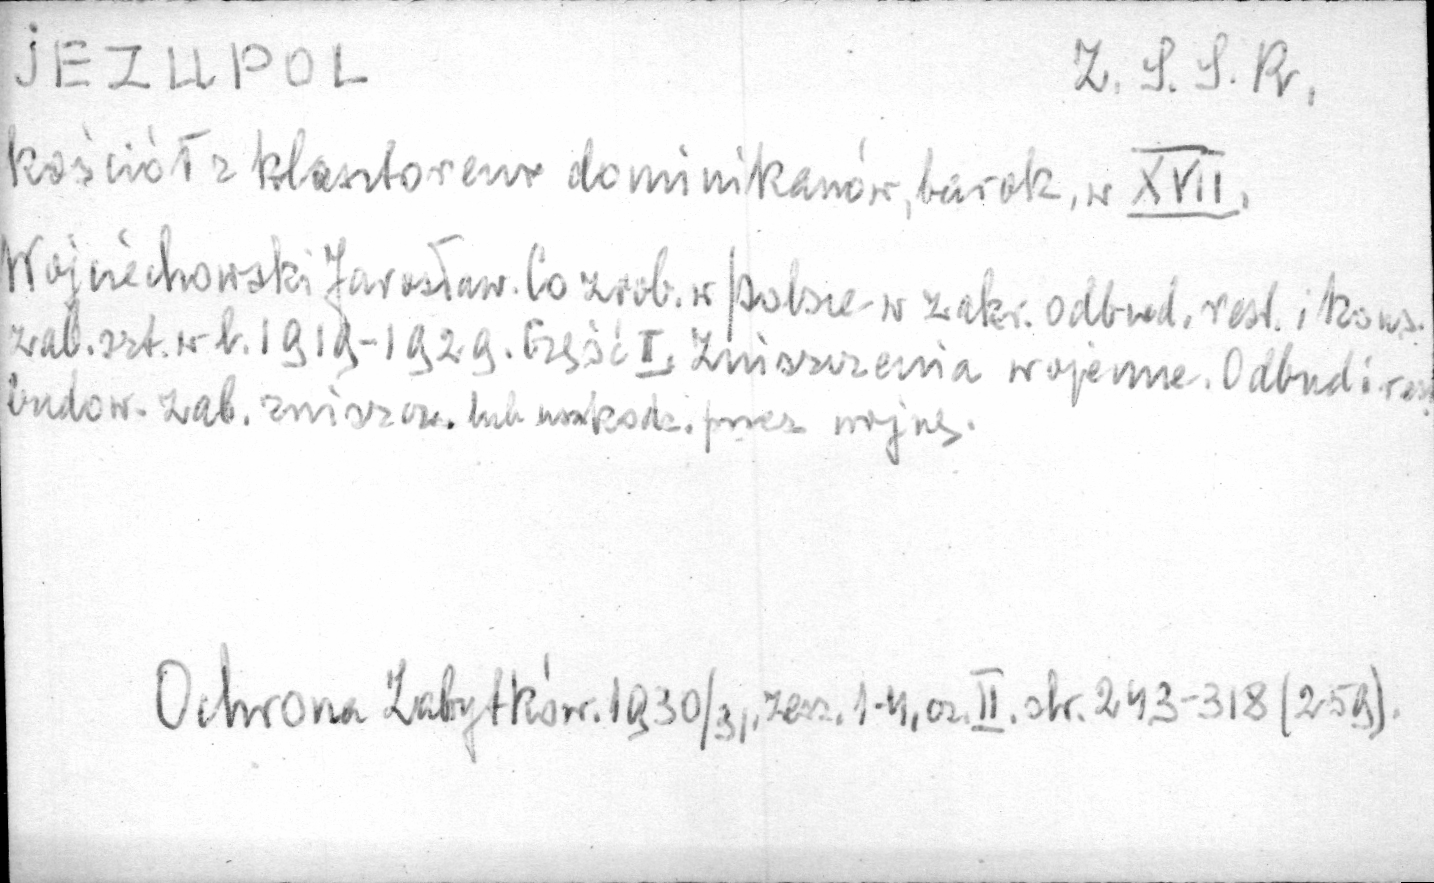 JEZUPOL Z.S.S.R.
kościół z klasztorem dominikanów, barok, w XVII.
Wojciechowski Jarosław. Co zrob. w Polsce w zakr. odbud. rest. i kons.
zab. szt. w l. 1919-1929. Część II. Zniszczenia wojenne. Odbud i rest
budow. zab. zniszcz. lub uszkodz. przez wojnę.
Ochrona Zabytków. 1930/31, zesz. 1-4, cz. II. str. 243-318 (259).